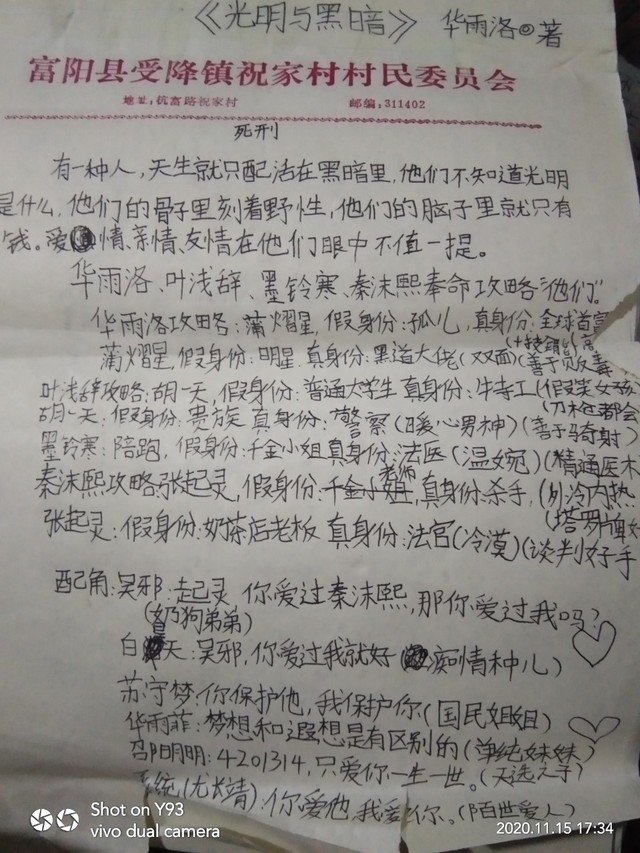 《光明与黑暗》 华雨洛◎著
富阳县受降镇祝家村村民委员会
地址:杭富路祝家村 邮编:311402
死刑
有一种人,天生就只配活在黑暗里,他们不知道光明
是什么,他们的骨子里刻着野性,他们的脑子里就只有
钱。爱情、亲情、友情在他们眼中不值一提。
华雨洛、叶浅辞、墨铃寒、秦沫熙奉命攻略“他们”
华雨洛攻略:蒲熠星,假身份:孤儿,真身份:全球首富
蒲熠星,假身份:明星,真身份:黑道大佬(双面)(善于贩毒
叶浅辞攻略:胡一天,假身份:普通大学生 真身份:牛寺工(假笑女孩
胡一天:假身份:贵族 真身份:警察(暖心男神)(善于骑射)
墨铃寒:陪跑,假身份:千金小姐真身份:法医(温婉)(精通医术
老师
秦沫熙攻略:张起灵,假身份:千金小姐,真身份:杀手,(外冷内热
张起灵:假身份:奶茶店老板 真身份:法官(冷漠)(谈判好手
配角:吴邪:起灵,你爱过秦沫熙,那你爱过我吗?
(奶狗弟弟)
白天:吴邪,你爱过我就好(痴情种儿)
苏守梦:你保护他,我保护你(国民姐姐)
华雨菲:梦想和遐想是有区别的(单纯妹妹)
邵阳明明:4201314,只爱你一生一世。(天选之子)
系统(尤长靖):你爱他,我爱你。(陌世爱人)
Shot on Y93
vivo dual camera
2020.11.15 17:34